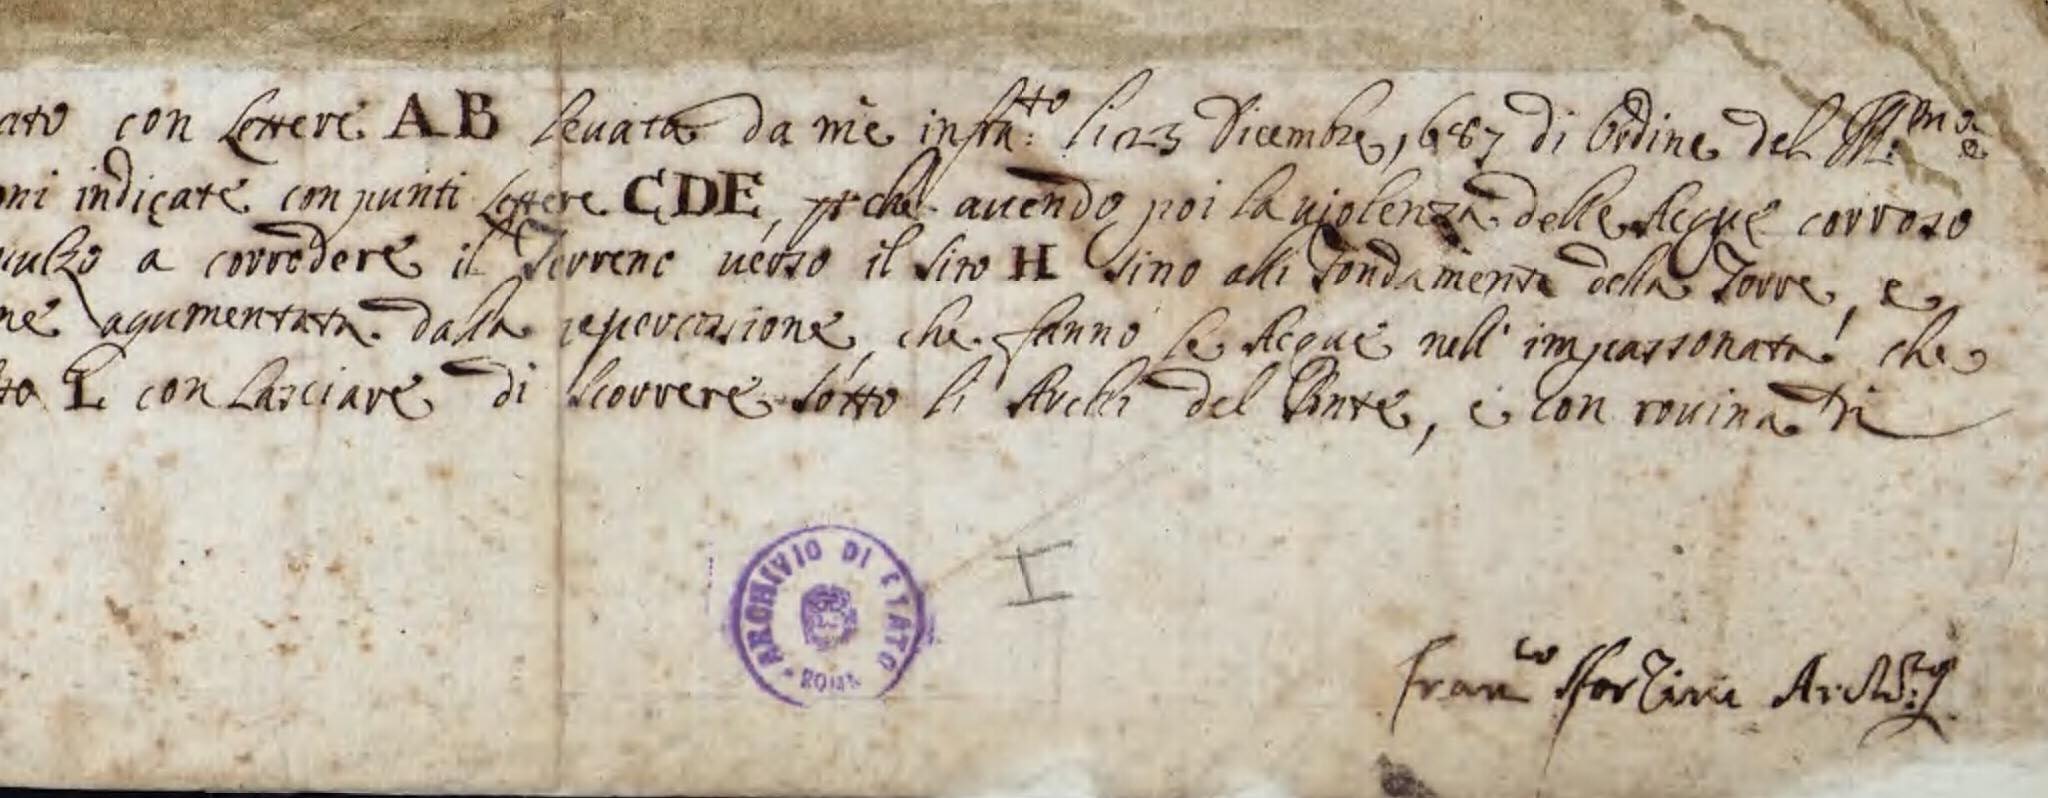 ato con Lettere A B leuata da mè infra:tto li 23 Dicembre 1687 di Ordine del
oni indicate con punti Lettere CDE, pr che auendo poi la uiolenza delle Acque corroso
a corrodere il Terreno uerso il sito H sino alli fondamenta della Torre, e
ne agumentata dalla repercussione, che fanno le Acque nell' impassonata che
to L con Lasciare di scorrere sotto li Archi del Ponte, e con rouina di
ARCHIVIO DI STATO
ROMA
I
Fran:co Archto